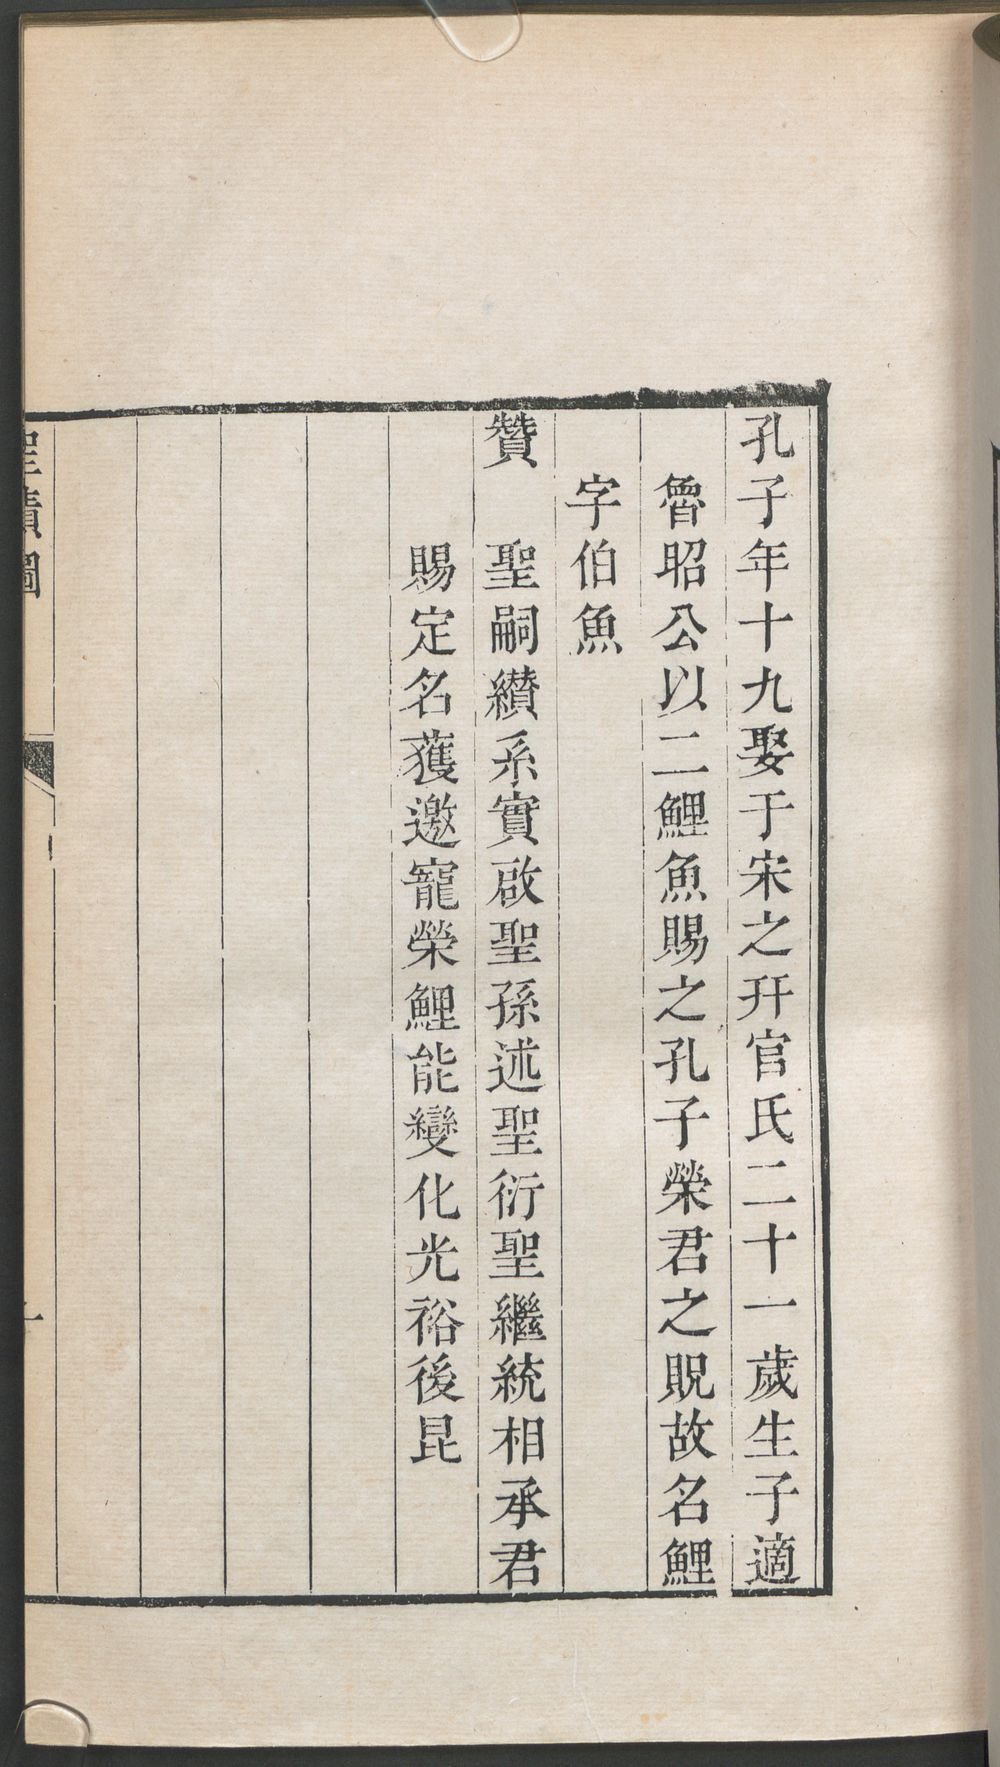 孔子年十九娶于宋之幵官氏二十一歲生子適
魯昭公以二鯉魚賜之孔子榮君之貺故名鯉
字伯魚
贊 聖嗣纉系實啟聖孫述聖衍聖繼統相承君
賜定名獲邀寵榮鯉能變化光裕後昆
聖蹟圖